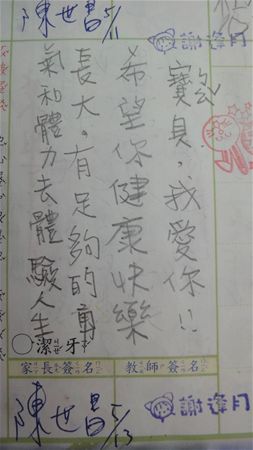 陳世昌 5/11
謝逢月
寶貝，我愛你!!
希望你健康快樂
長大。有足夠的勇
氣和體力去體驗人生
○潔牙
教師簽名
家長簽名
謝逢月
陳世昌 5/13